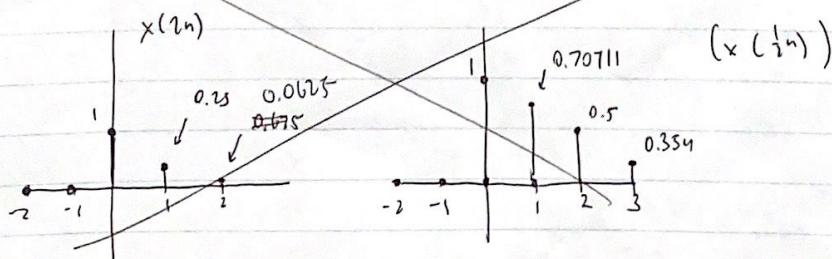 x(2n)
1
0.25
0.0625
0.675
-2 -1 1 2
(x(½n))
1
0.70711
0.5
0.354
-2 -1 1 2 3